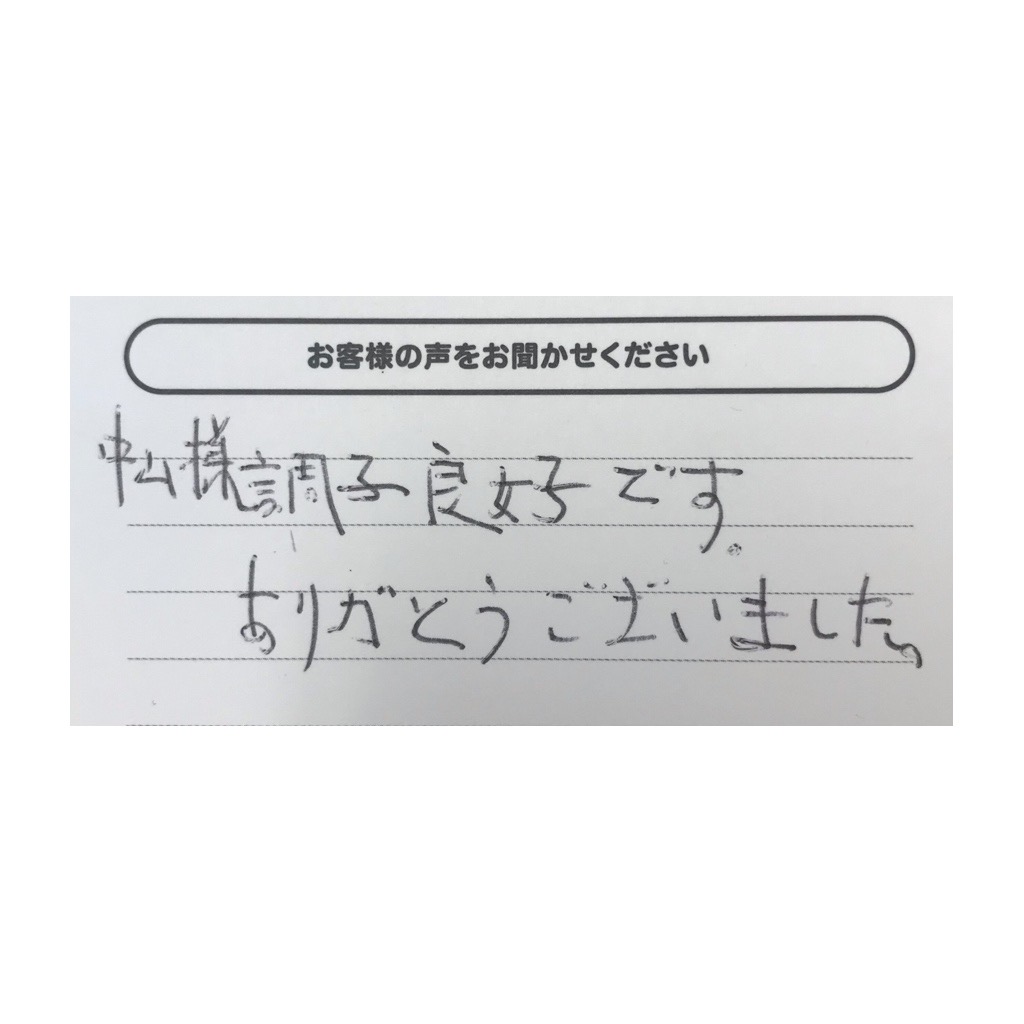 お客様の声をお聞かせください
中山様調子良好です。
ありがとうございました。